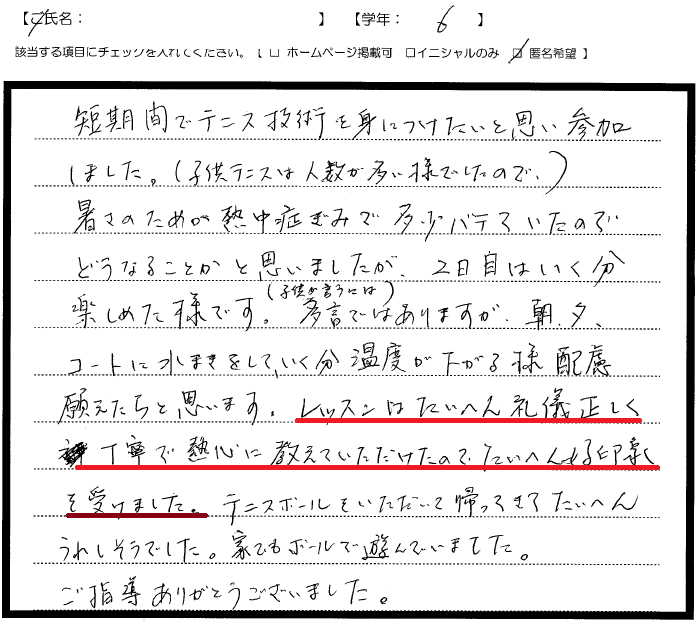 【ご氏名： 】 【学年： 6 】
該当する項目にチェックを入れてください。【 □ ホームページ掲載可 □イニシャルのみ □ 匿名希望 】
短期間でテニス技術を身につけたいと思い参加
しました。(子供テニスは人数が多い様でしたので、)
暑さのためか熱中症ぎみで多少バテていたので
どうなることかと思いましたが、2日目はいく分
(子供が言うには)
楽しめた様です。多言ではありますが、朝、夕、
コートに水まきをして、いく分温度が下がる様配慮
願えたらと思います。レッスンはたいへん礼儀正しく
丁寧で熱心に教えていただけたのでたいへん好印象
を受けました。テニスボールをいただいて帰ってきてたいへん
うれしそうでした。家でもボールで遊んでいました。
ご指導ありがとうございました。